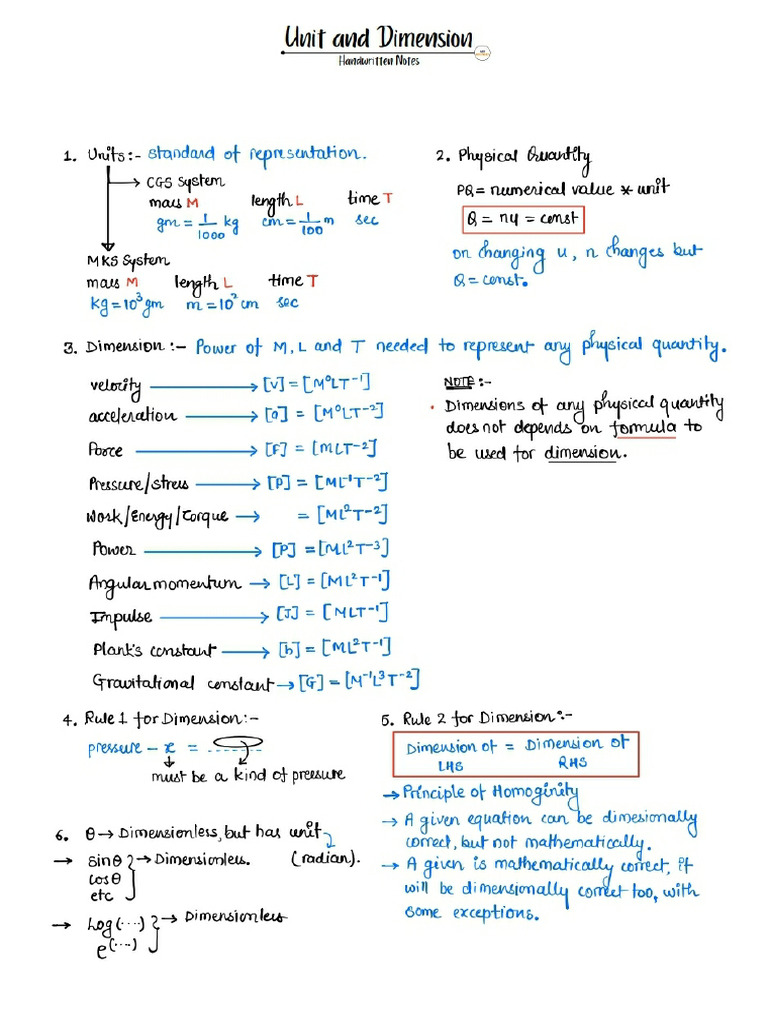 Unit and Dimension
Handwritten Notes
1. Units:- standard of representation.
→ CGS System
mass M length L time T
gm = 1/1000 kg cm = 1/100 m sec
MKS System
mass M length L time T
kg = 10³ gm m = 10² cm sec
2. Physical Quantity
PQ = numerical value * unit
Q = nu = const
on changing u, n changes but
Q = const.
3. Dimension :- Power of M, L and T needed to represent any physical quantity.
velocity → [V] = [M⁰LT⁻¹]
acceleration → [a] = [M⁰LT⁻²]
Force → [F] = [MLT⁻²]
Pressure/stress → [P] = [ML⁻¹T⁻²]
Work/Energy/Torque → = [ML²T⁻²]
Power → [P] = [ML²T⁻³]
Angular momentum → [L] = [ML²T⁻¹]
Impulse → [J] = [MLT⁻¹]
Plank's constant → [h] = [ML²T⁻¹]
Gravitational constant → [G] = [M⁻¹L³T⁻²]
NOTE:-
• Dimensions of any physical quantity
does not depends on formula to
be used for dimension.
4. Rule 1 for Dimension:-
pressure - x =
must be a kind of pressure
5. Rule 2 for Dimension:-
Dimension of = Dimension of
LHS RHS
→ Principle of Homoginity
→ A given equation can be dimesionally
correct, but not mathematically.
→ A given is mathematically correct, it
will be dimensionally correct too, with
some exceptions.
6. θ → Dimensionless, but has unit
(radian).
→ sinθ
cosθ
etc
→ Dimensionless.
→ Log(...)
e^(...)
→ Dimensionless